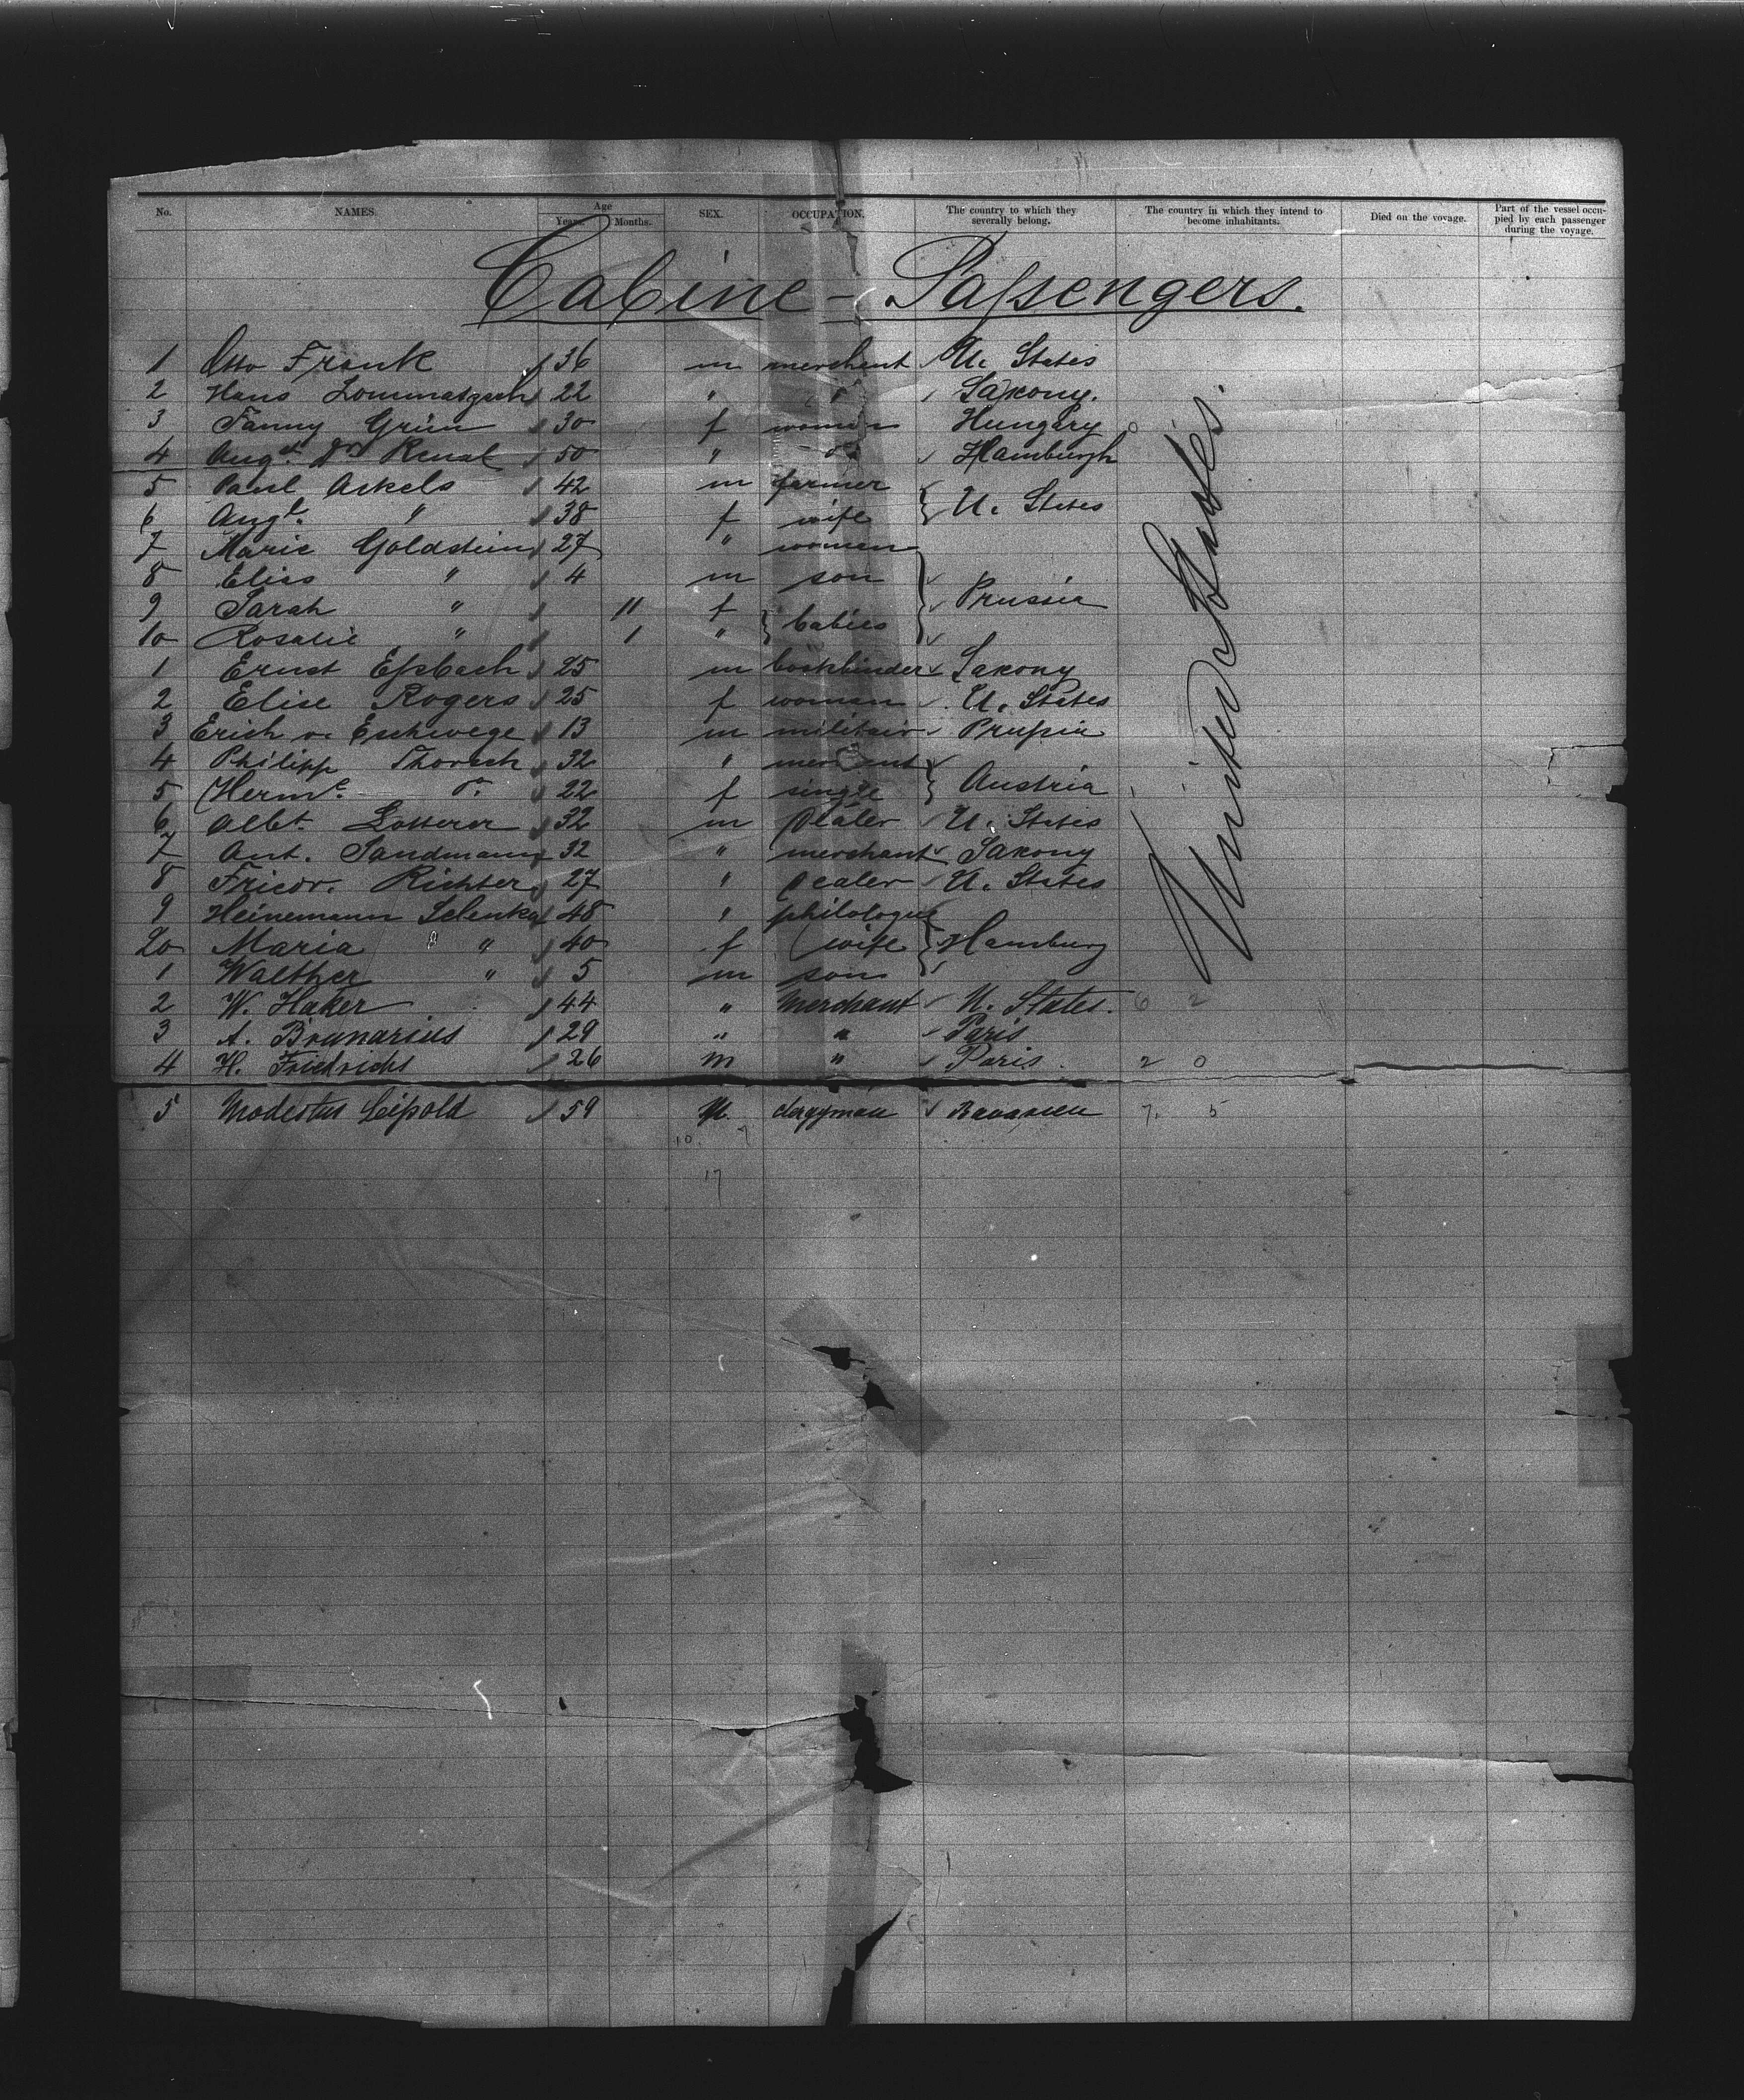 No. NAMES. Age Years. Months. SEX. OCCUPATION. The country to which they severally belong. The country in which they intend to become inhabitants. Died on the voyage. Part of the vessel occupied by each passenger during the voyage.
Cabine - Passengers.
1 Otto Frank 36 m merchant U. States
2 Hans Lommatzsch 22 " " Saxony.
3 Fanny Grün 30 f women Hungary
4 Aug.t 50 " do Hamburgh
5 Paul Arkels 42 m farmer U. States
6 Aug.t " 38 f wife
7 Marie Goldstein 27 " women
8 Elias " 4 m son Prussia
9 Sarah " 11 f babies
10 Rosalie " 1 "
1 Ernst Essbach 25 m bookbinder Saxony
2 Elise Rogers 25 f woman U. States
3 Erich v. Eschwege 13 m militair Prussia
4 Philipp Thorsch 32 " merchant Austria
5 Herm.e d.o 22 f single
6 Albt. Lotterer 32 m Dealer U. States
7 Ant. Sandmann 32 " merchant Saxony
8 Friedr. Richter 27 " Dealer U. States
9 Heinemann Selenka 48 " philologue
20 Maria " 40 f wife Hamburg
1 Walther " 5 m son
2 W. Haker 44 " Merchant U. States. 6 2
3 A. Brunarius 29 " " Paris
4 H. Friedrichs 26 m " Paris. 2 0
5 Modestus Leipold 59 M. clergyman 7. 5
10. 7
17
United States.